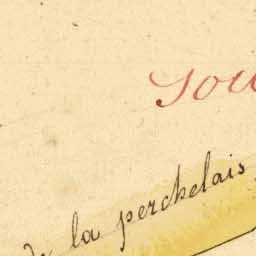 de la perchelais